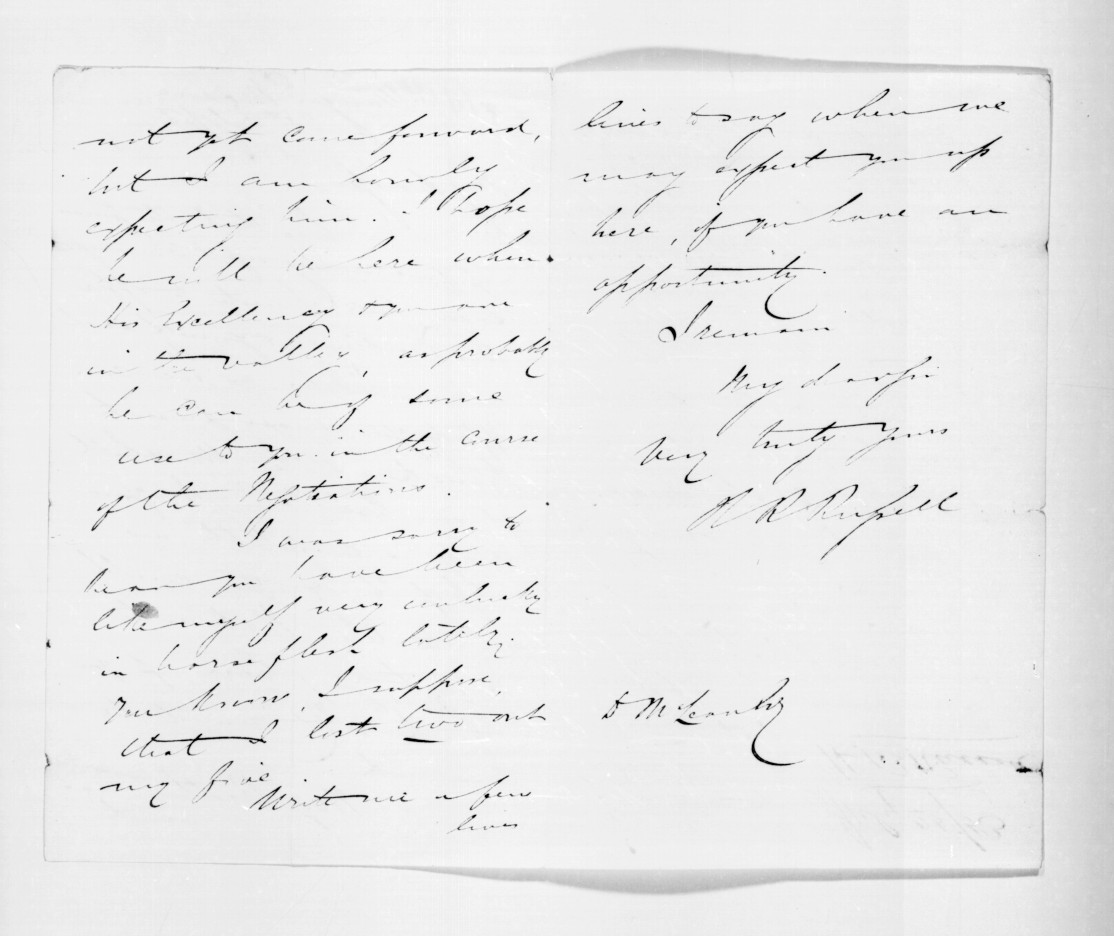 not yet come forward,
but I am hourly
expecting him. I hope
he will be here when
His Excellency & you are
in the valley, as probably
he can be of some
use to you in the course
of the Negotiations.
I was sorry to
hear you have been
like myself very unlucky
in horse flesh lately.
You know, I suppose,
that I lost two out
my five
Write me a few
lines
lines to say when we
may expect you up
here, if you have an
opportunity.
I remain
My dear Sir
Very truly yours
H R Russell
D McLean Esq